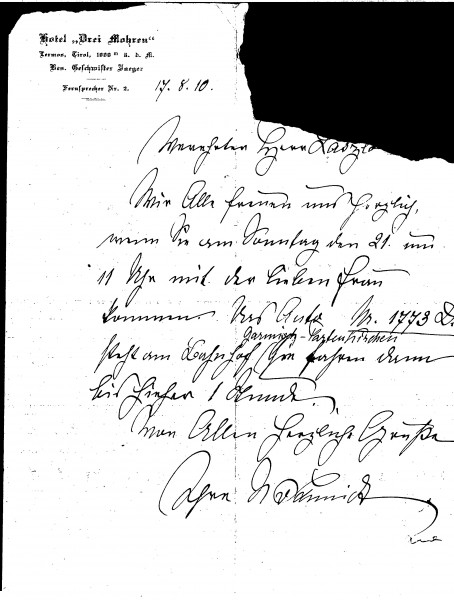 Hotel „Drei Mohren“
Lermos, Tirol, 1000 m ü. d. M.
Bes. Geschwister Jaeger
Fernsprecher Nr. 2.
17. 8. 10.
Verehrter Herr László
Wir Alle freuen uns herzlich,
wenn Sie am Sonntag den 21. um
11 Uhr mit der lieben Frau
kommen. Das Auto Nr. 1773 D.
Garmisch-Partenkirchen
steht am Bahnhof Sie fahren dann
bis hieher 1 Stunde.
Von Allen herzliche Grüße
Ihre